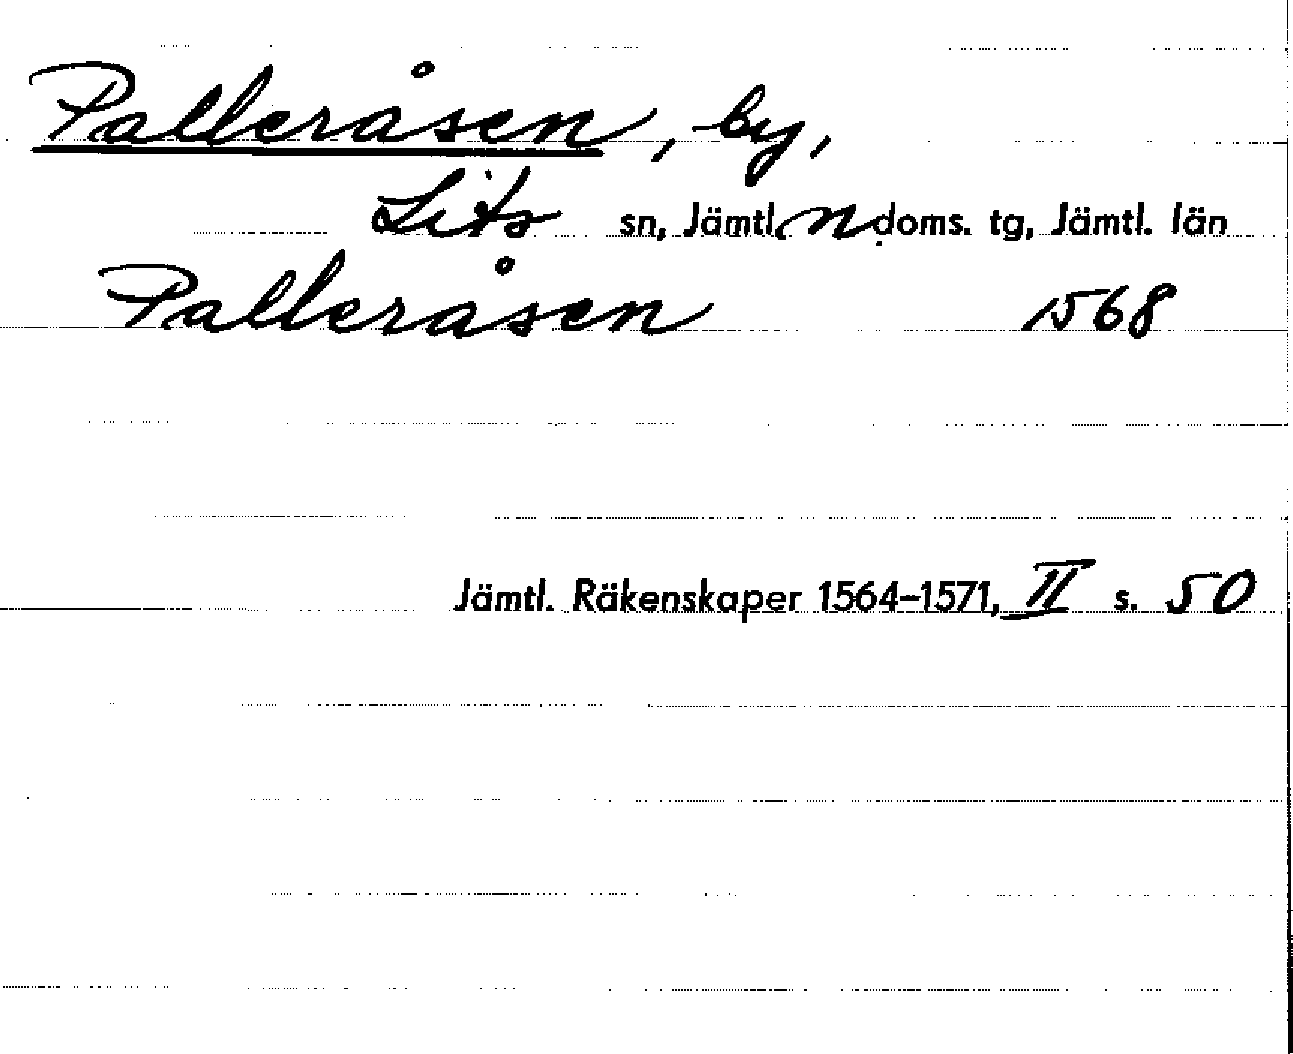 Palleråsen, by,
Lits sn, Jämtl. n doms. tg, Jämtl. län
Palleråsen 1568
Jämtl. Räkenskaper 1564-1571, II s. 50